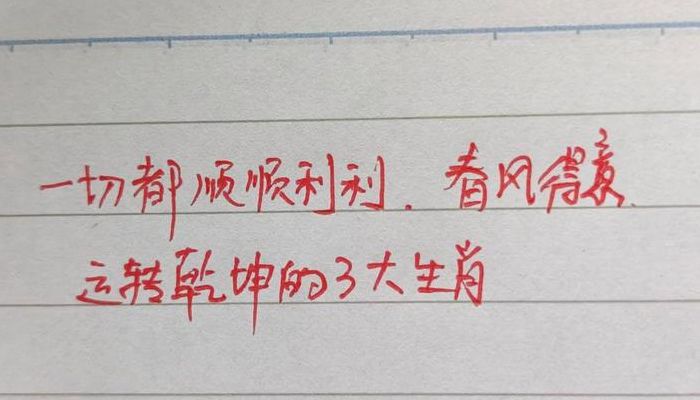 一切都顺顺利利.春风得意.
运转乾坤的3大生肖